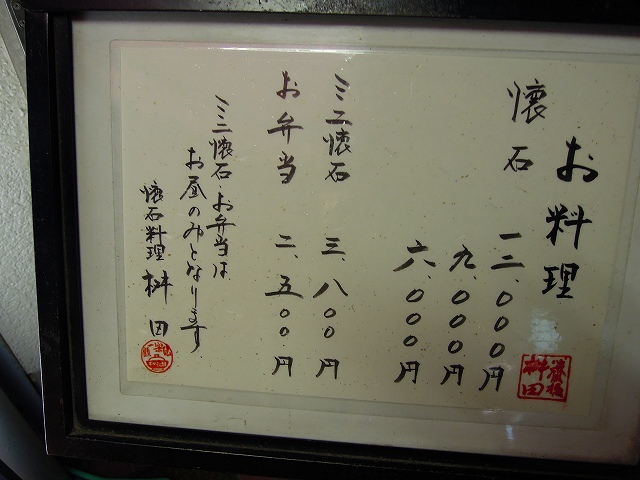 お料理
懐石
一二、〇〇〇円
九、〇〇〇円
六、〇〇〇円
ミニ懐石 三、八〇〇円
お弁当 二、五〇〇円
ミニ懐石・お弁当は
お昼のみとなります
懐石料理 桝田
桝田